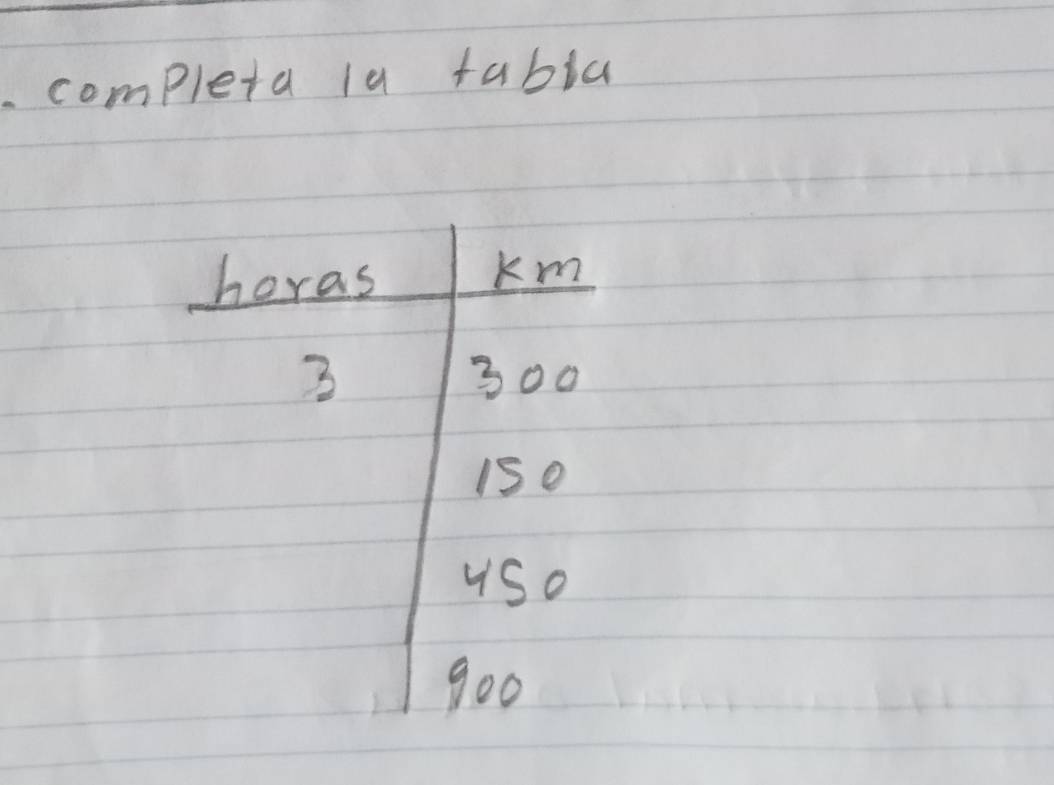 . completa la tabla
horas km
3 300
150
450
900